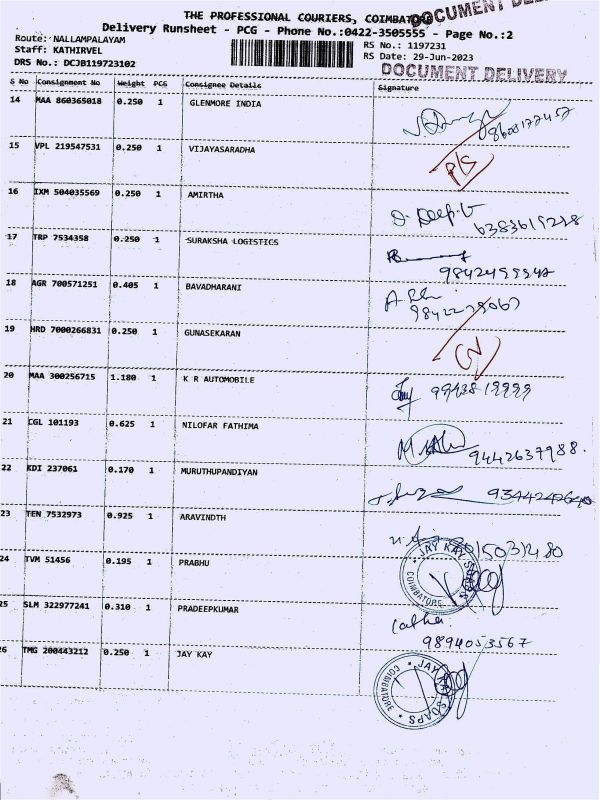 THE PROFESSIONAL COURIERS, COIMBATORE
DOCUMENT DELIVERY
Delivery Runsheet - PCG - Phone No.:0422-3505555 - Page No.:2
Route: NALLAMPALAYAM
RS No.: 1197231
Staff: KATHIRVEL
RS Date: 29-Jun-2023
DRS No.: DCJB119723102
DOCUMENT DELIVERY
S No Consignment No Weight PCS Consignee Details Signature
14 MAA 860365018 0.250 1 GLENMORE INDIA
15 VPL 219547531 0.250 1 VIJAYASARADHA
16 IXM 504035569 0.250 1 AMIRTHA
D. Deepi
17 TRP 7534358 0.250 1 SURAKSHA LOGISTICS
18 AGR 700571251 0.405 1 BAVADHARANI
19 HRD 7000266831 0.250 1 GUNASEKARAN
20 MAA 300256715 1.180 1 K R AUTOMOBILE
21 CGL 101193 0.625 1 NILOFAR FATHIMA
9442637988.
22 KDI 237061 0.170 1 MURUTHUPANDIYAN
23 TEN 7532973 0.925 1 ARAVINDTH
24 TVM 51456 0.195 1 PRABHU
JAY KAY SOAPS
COIMBATORE
25 SLM 322977241 0.310 1 PRADEEPKUMAR
Latha
9894053567
26 TMG 200443212 0.250 1 JAY KAY
JAY KAY SOAPS
COIMBATORE